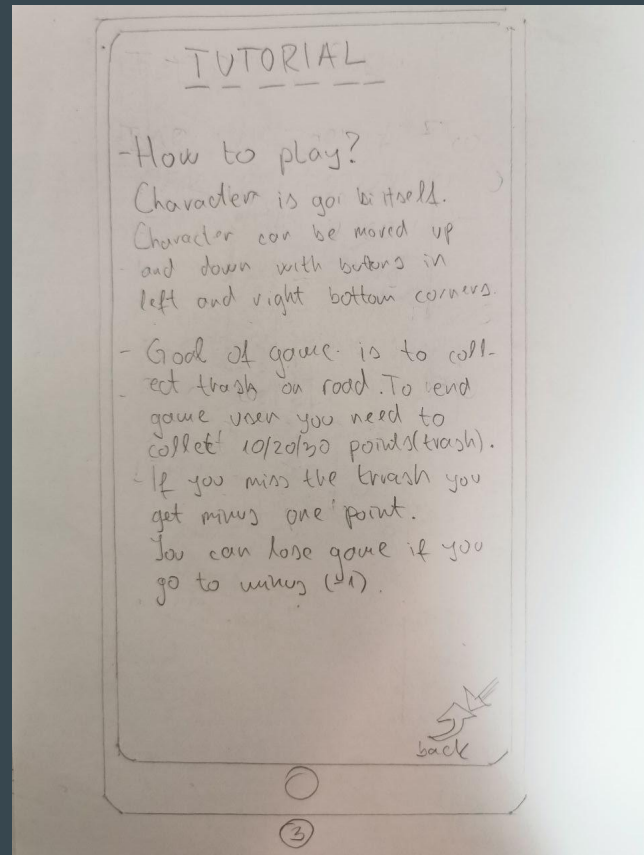 TUTORIAL
- How to play?
Character is goi bi itself.
Character can be moved up
and down with butons in
left and right bottom corners.
- Goal of game is to coll-
ect trash on road. To end
game user you need to
collet 10/20/30 points(trash).
- If you miss the trrash you
get minus one point.
You can lose game if you
go to minus (-1).
back
3